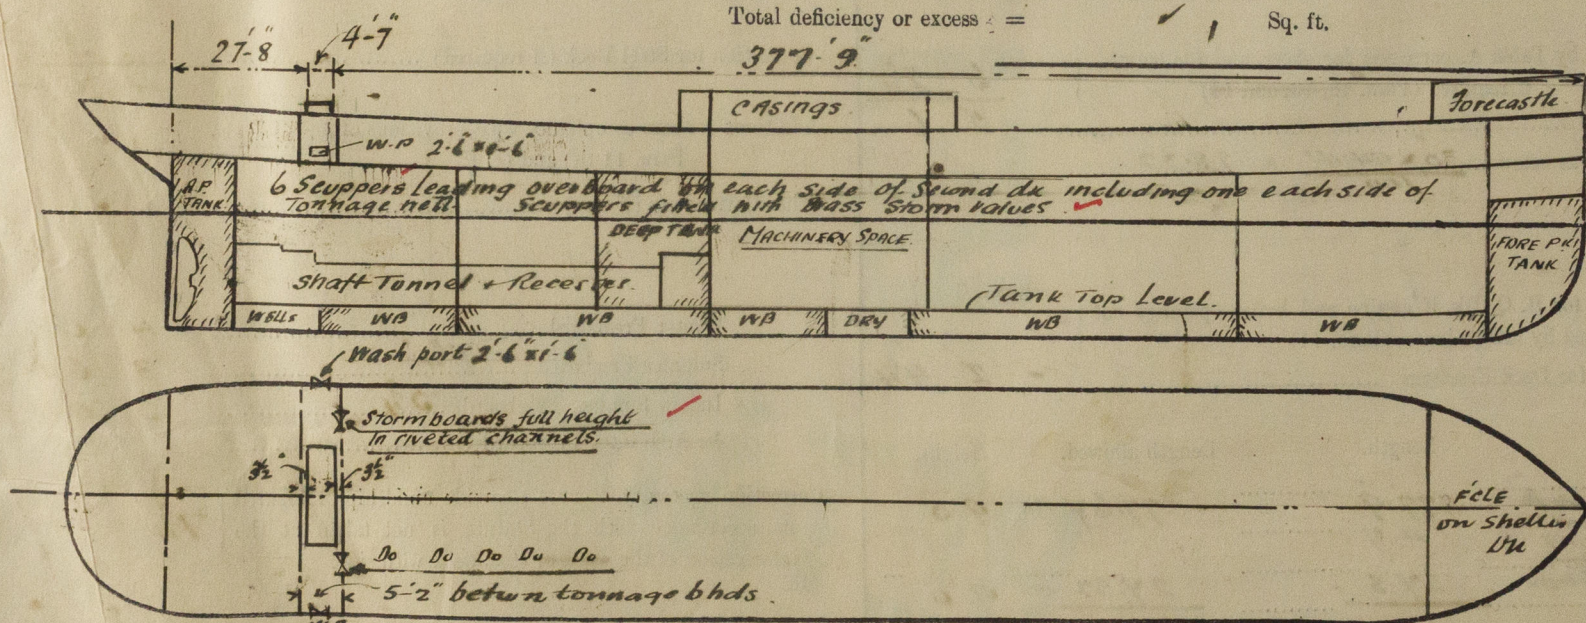 Total deficiency or excess = Sq. ft.
27'-8 4'-7" 377'-9"
CASINGS
Forecastle
W.P 2'-6" x 1'-6"
A.P. TANK
6 Scuppers leading overboard on each side of Second dk including one each side of
Tonnage well. Scuppers fitted with Brass Storm Valves
DEEP TANK
MACHINERY SPACE
FORE PK
TANK
Shaft Tunnel + Recesses.
Tank Top Level.
WELLS WB WB WB DRY WB WB
Wash port 2'-6" x 1'-6"
Stormboards full height
In riveted channels.
3½" 3½"
FCLE
on Shelter
Dk
Do Do Do Do Do
5'-2" betwn tonnage bhds.